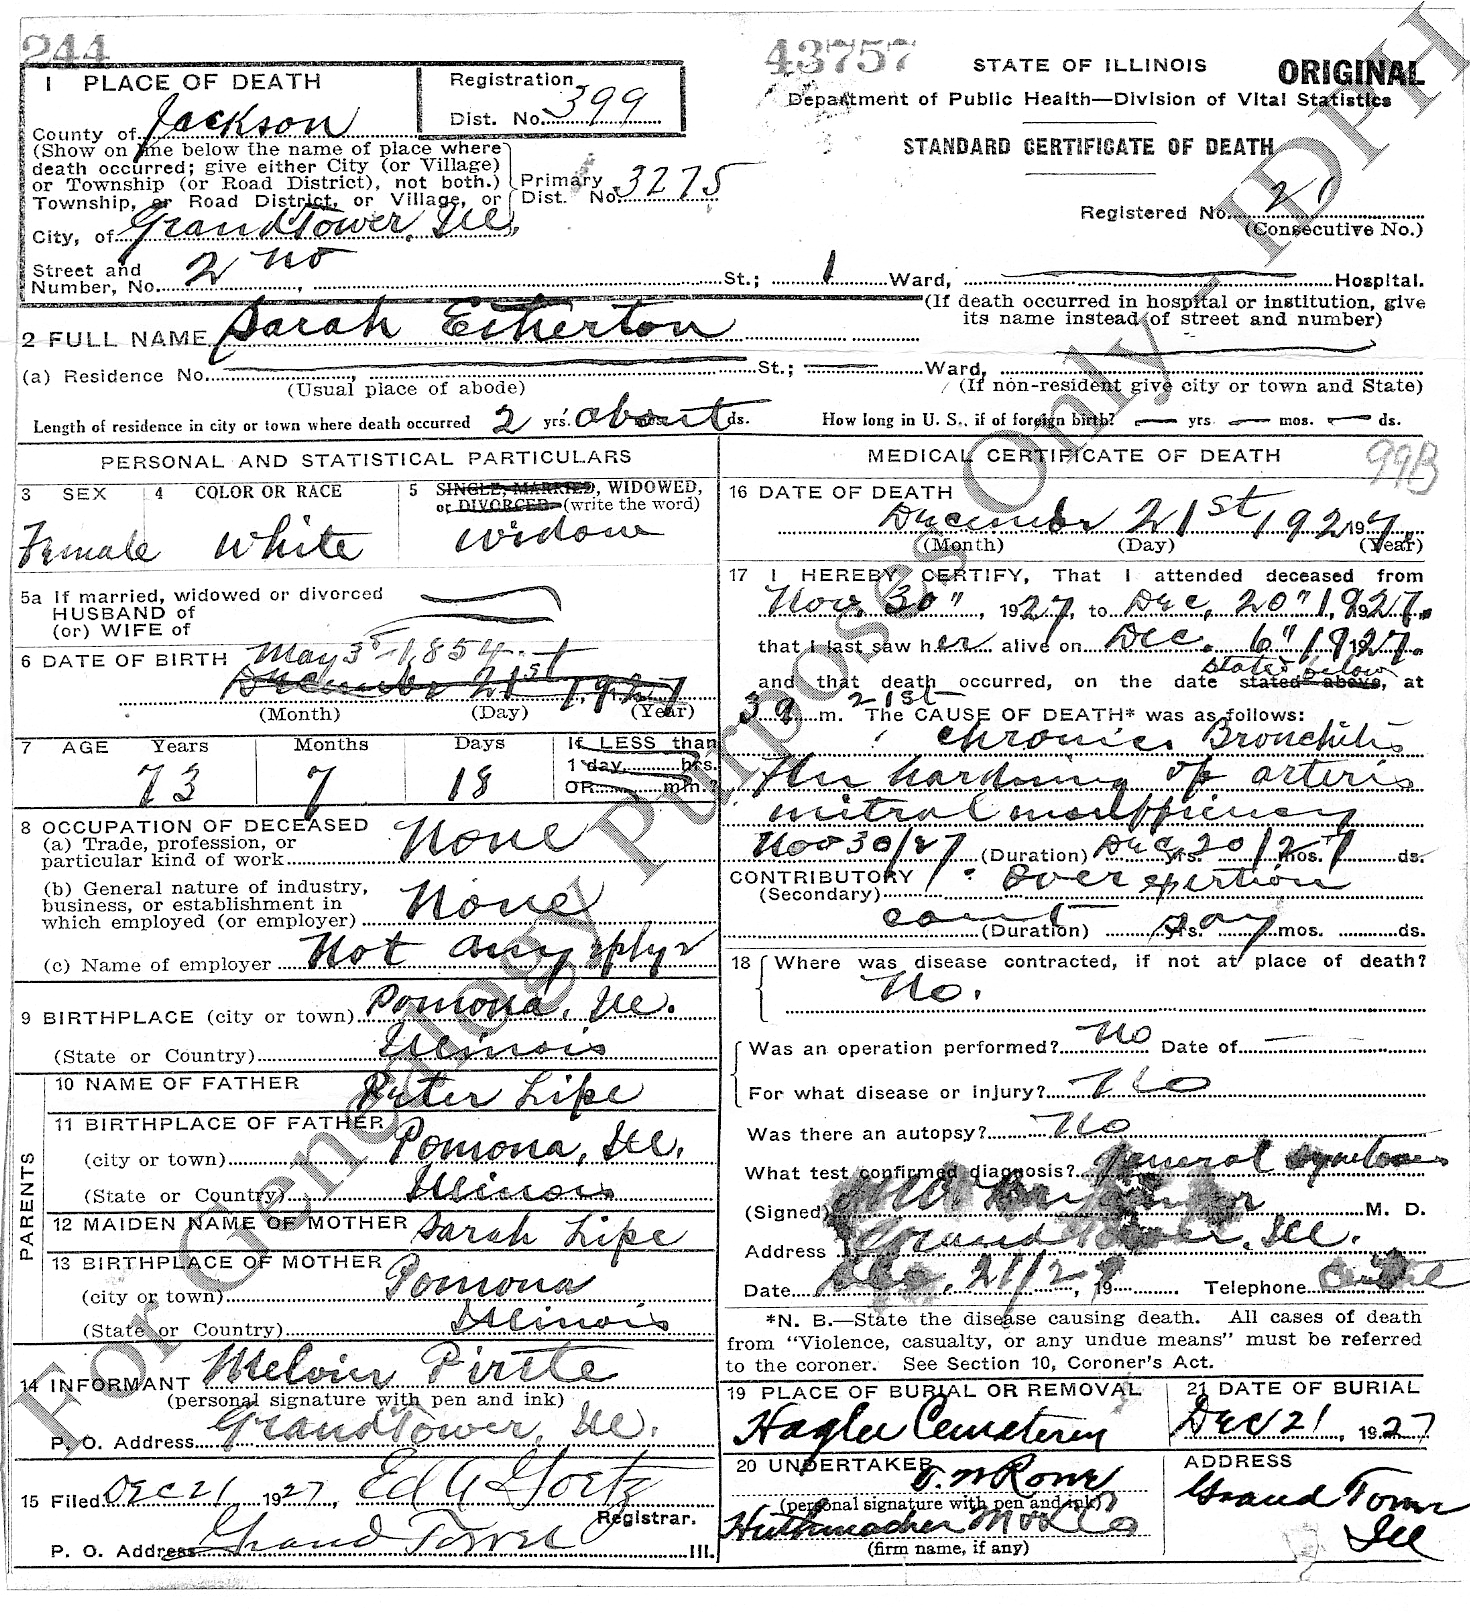 244
43757
STATE OF ILLINOIS
ORIGINAL
Department of Public Health—Division of Vital Statistics
STANDARD CERTIFICATE OF DEATH
1 PLACE OF DEATH
Registration
Dist. No. 399
County of Jackson
(Show on line below the name of place where
death occurred; give either City (or Village)
or Township (or Road District), not both.)
Township, or Road District, or Village, or
City, of Grand Tower, Ill.
Primary
Dist. No. 3275
Registered No. 21
(Consecutive No.)
Street and
Number, No. 2 no St.; 1 Ward, Hospital.
(If death occurred in hospital or institution, give
its name instead of street and number)
2 FULL NAME Sarah Etherton
(a) Residence No. St.; Ward,
(Usual place of abode)
(If non-resident give city or town and State)
Length of residence in city or town where death occurred 2 yrs. about ds.
How long in U. S., if of foreign birth? yrs mos. ds.
PERSONAL AND STATISTICAL PARTICULARS
3 SEX
Female
4 COLOR OR RACE
White
5 SINGLE, MARRIED, WIDOWED,
or DIVORCED (write the word)
Widow
5a If married, widowed or divorced
HUSBAND of
(or) WIFE of
6 DATE OF BIRTH May 3 1854
December 21st 1927
(Month) (Day) (Year)
7 AGE Years Months Days
73 7 18
If LESS than
1 day, hrs.
OR min.?
8 OCCUPATION OF DECEASED
(a) Trade, profession, or
particular kind of work None
(b) General nature of industry,
business, or establishment in
which employed (or employer) None
(c) Name of employer Not any
9 BIRTHPLACE (city or town) Pomona, Ill.
(State or Country) Illinois
PARENTS
10 NAME OF FATHER Peter Lipe
11 BIRTHPLACE OF FATHER
(city or town) Pomona, Ill.
(State or Country) Illinois
12 MAIDEN NAME OF MOTHER Sarah Lipe
13 BIRTHPLACE OF MOTHER
(city or town) Pomona
(State or Country) Illinois
14 INFORMANT Melvin
(personal signature with pen and ink)
P. O. Address Grand Tower, Ill.
15 Filed Dec 21 1927, Ed G Goetz
Registrar.
P. O. Address Grand Tower Ill.
MEDICAL CERTIFICATE OF DEATH
99B
16 DATE OF DEATH
December 21st 1927
(Month) (Day) (Year)
17 I HEREBY CERTIFY, That I attended deceased from
Nov. 30", 1927, to Dec. 20" 1927.
that I last saw her alive on Dec. 6" 1927.
stated below
and that death occurred, on the date stated above, at
3 9 m. 21st The CAUSE OF DEATH* was as follows:
Chronic Bronchitis
The hardning of arteris
mitral insufficiency
Nov 30/27 (Duration) Dec 20/27 yrs. mos. ds.
CONTRIBUTORY Over exertion
(Secondary)
cant (Duration) say yrs. mos. ds.
18 Where was disease contracted, if not at place of death?
No.
Was an operation performed? No Date of
For what disease or injury? No
Was there an autopsy? No
What test confirmed diagnosis? General symptoms
(Signed) M. D.
Address Grand Tower, Ill.
Date Dec. 21/27, 19 Telephone
*N. B.—State the disease causing death. All cases of death
from "Violence, casualty, or any undue means" must be referred
to the coroner. See Section 10, Coroner's Act.
19 PLACE OF BURIAL OR REMOVAL
Hagler Cemetery
21 DATE OF BURIAL
Dec 21, 1927
20 UNDERTAKER
(personal signature with pen and ink)
Huthmacher
(firm name, if any)
ADDRESS
Grand Tower
Ill
For Genealogy Purposes Only - IDPH